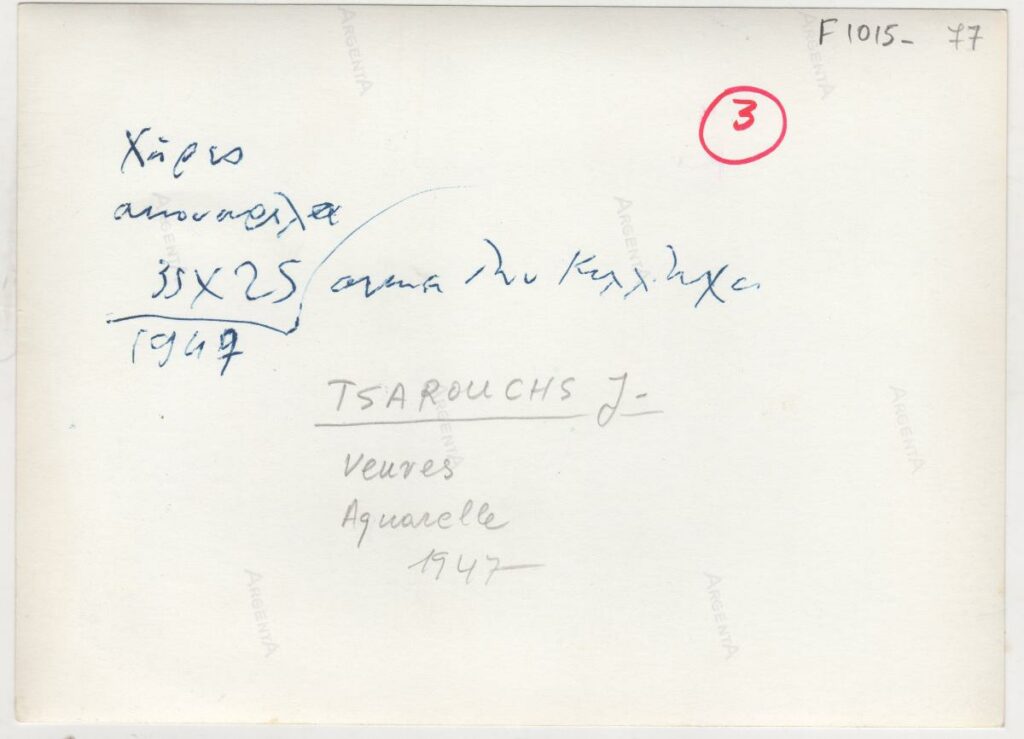 F 1015- 77
3
Χήρες
ακουαρέλα
35 X 25
1947
TSAROUCHS J-
Veuves
Aquarelle
1947
ARGENTA
ARGENTA
ARGENTA
ARGENTA
ARGENTA
ARGENTA
ARGENTA
ARGENTA